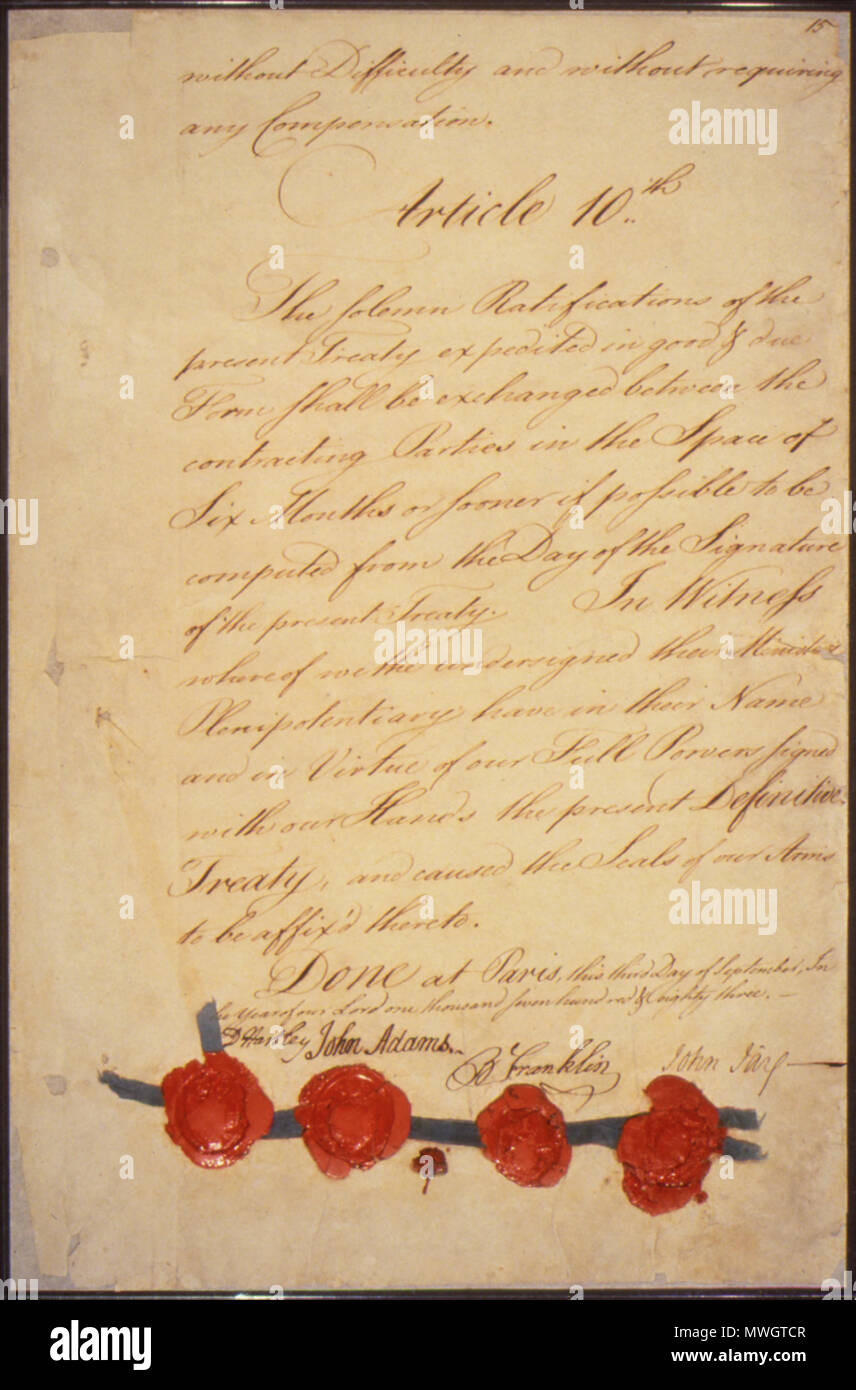 15
without Difficulty and without requiring
any Compensation.
Article 10th
The solemn Ratifications of the
present Treaty expedited in good & due
Form shall be exchanged between the
contracting Parties in the Space of
Six Months or sooner if possible to be
computed from the Day of the Signature
of the present Treaty. In Witness
whereof we the undersigned their Ministers
Plenipotentiary have in their Name
and in Virtue of our Full Powers signed
with our Hands the present Definitive
Treaty, and caused the Seals of our Arms
to be affix'd thereto.
Done at Paris, this third Day of September, In
the Year of our Lord one thousand seven hundred & eighty three.—
D Hartley John Adams. B Franklin John Jay—
a alamy
alamy
Image ID: MWGTCR
www.alamy.com